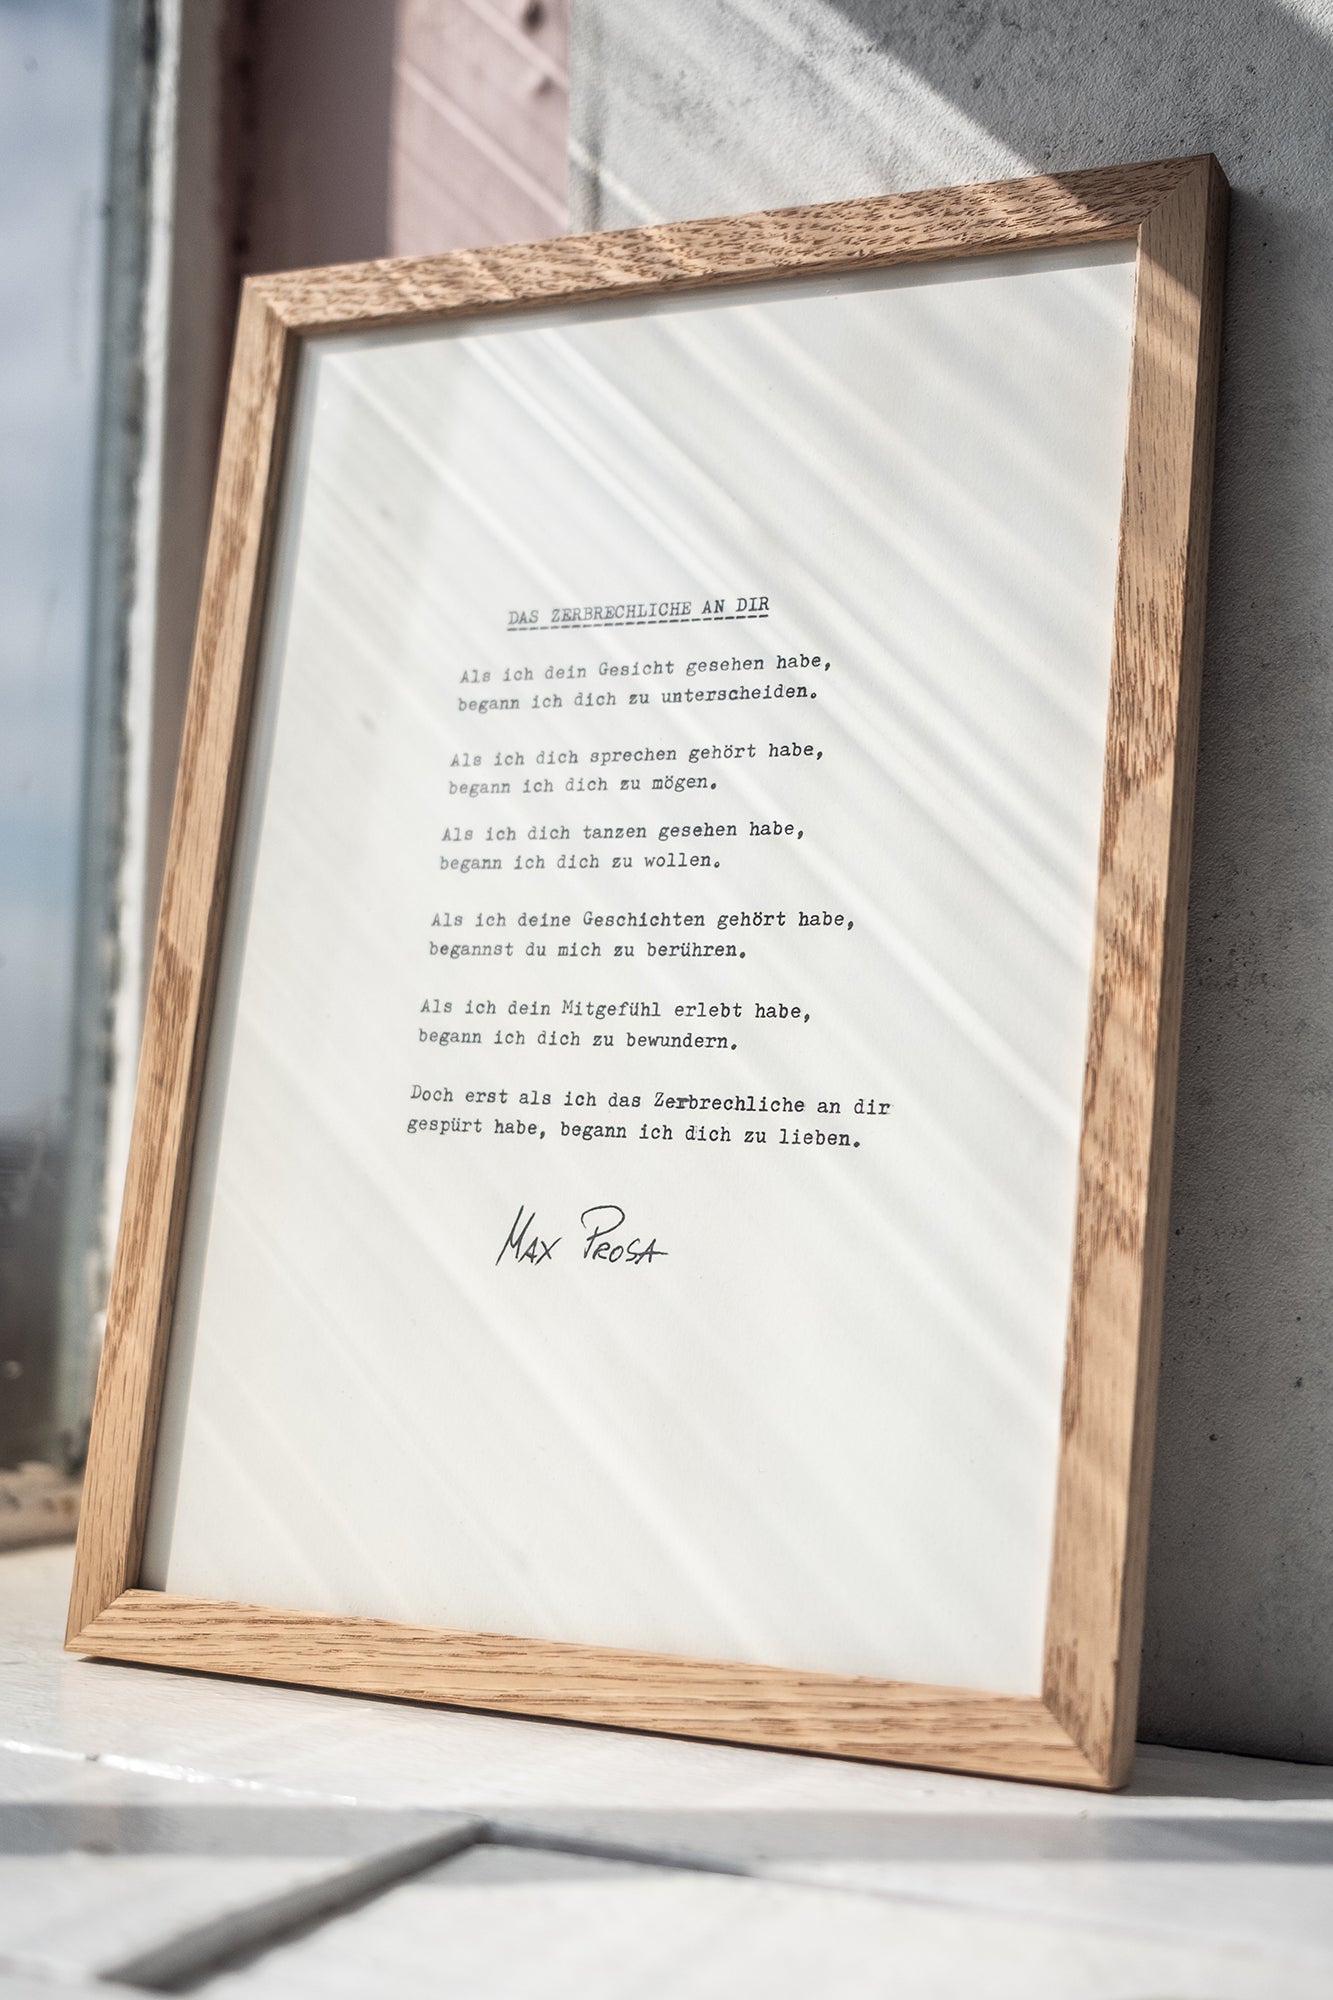 DAS ZERBRECHLICHE AN DIR
Als ich dein Gesicht gesehen habe,
begann ich dich zu unterscheiden.
Als ich dich sprechen gehört habe,
begann ich dich zu mögen.
Als ich dich tanzen gesehen habe,
begann ich dich zu wollen.
Als ich deine Geschichten gehört habe,
begannst du mich zu berühren.
Als ich dein Mitgefühl erlebt habe,
begann ich dich zu bewundern.
Doch erst als ich das Zerbrechliche an dir
gespürt habe, begann ich dich zu lieben.
MAX PROSA